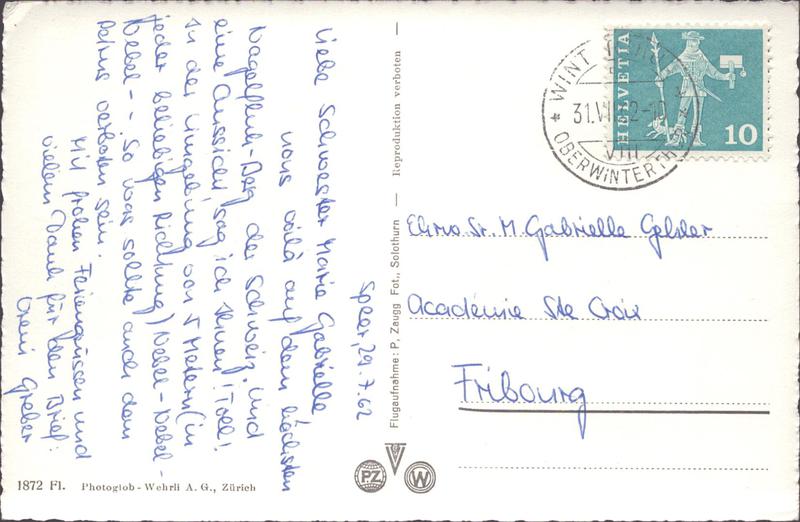 Speer, 29.7.62
Liebe Schwester Marie Gabrielle,
nous voilà auf dem höchsten
Nagelfluh-Berg der Schweiz. Und
eine Aussicht sag ich Ihnen! Toll!
In der Umgebung von 5 Metern (in
jeder beliebigen Richtung) Nebel-Nebel-
Nebel - - So was sollte auch dem
Petrus verboten sein.
Mit frohen Feriengrüssen und
vielem Dank für den Brief:
Greber
1872 Fl. Photoglob-Wehrli A. G., Zürich
Flugaufnahme: P. Zaugg Fot., Solothurn — Reproduktion verboten —
PZ
W
WINT
31.VII 62-10
VIII
OBERWINTERTH
HELVETIA
10
Sr. M. Gabrielle
Académie Ste Croix
Fribourg